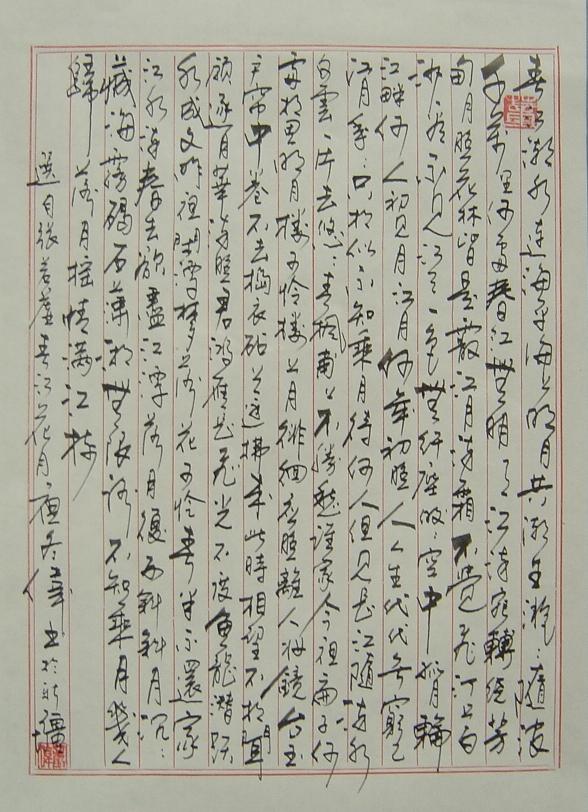 春江潮水连海平海上明月共潮生滟々随波
千万里何处春江無月明江流宛轉绕芳
甸月照花林皆是霰江月流霜不觉飞汀上白
沙看不见江天一色無纤塵皎々空中孤月輪
江畔何人初见月江月何年初照人人生代代無窮已
江月年々只相似不知乘月待何人但见长江随流水
白雲一片去悠々青楓浦上不勝愁谁家今夜扁子何
處相思明月楼可怜楼上月徘徊应照離人妆鏡台玉
户帘中卷不去捣衣砧上还拂来此時相望不相闻
願逐月華流照君鸿雁长飛光不度魚龍潜跃
水成文昨夜闲潭梦落花可怜春半不還家
江水流春去欲盡江潭落月復西斜斜月沉々
藏海霧碣石潇湘無限路不知乘月幾人
歸落月摇情满江树
選自張若虚春江花月夜 書於新